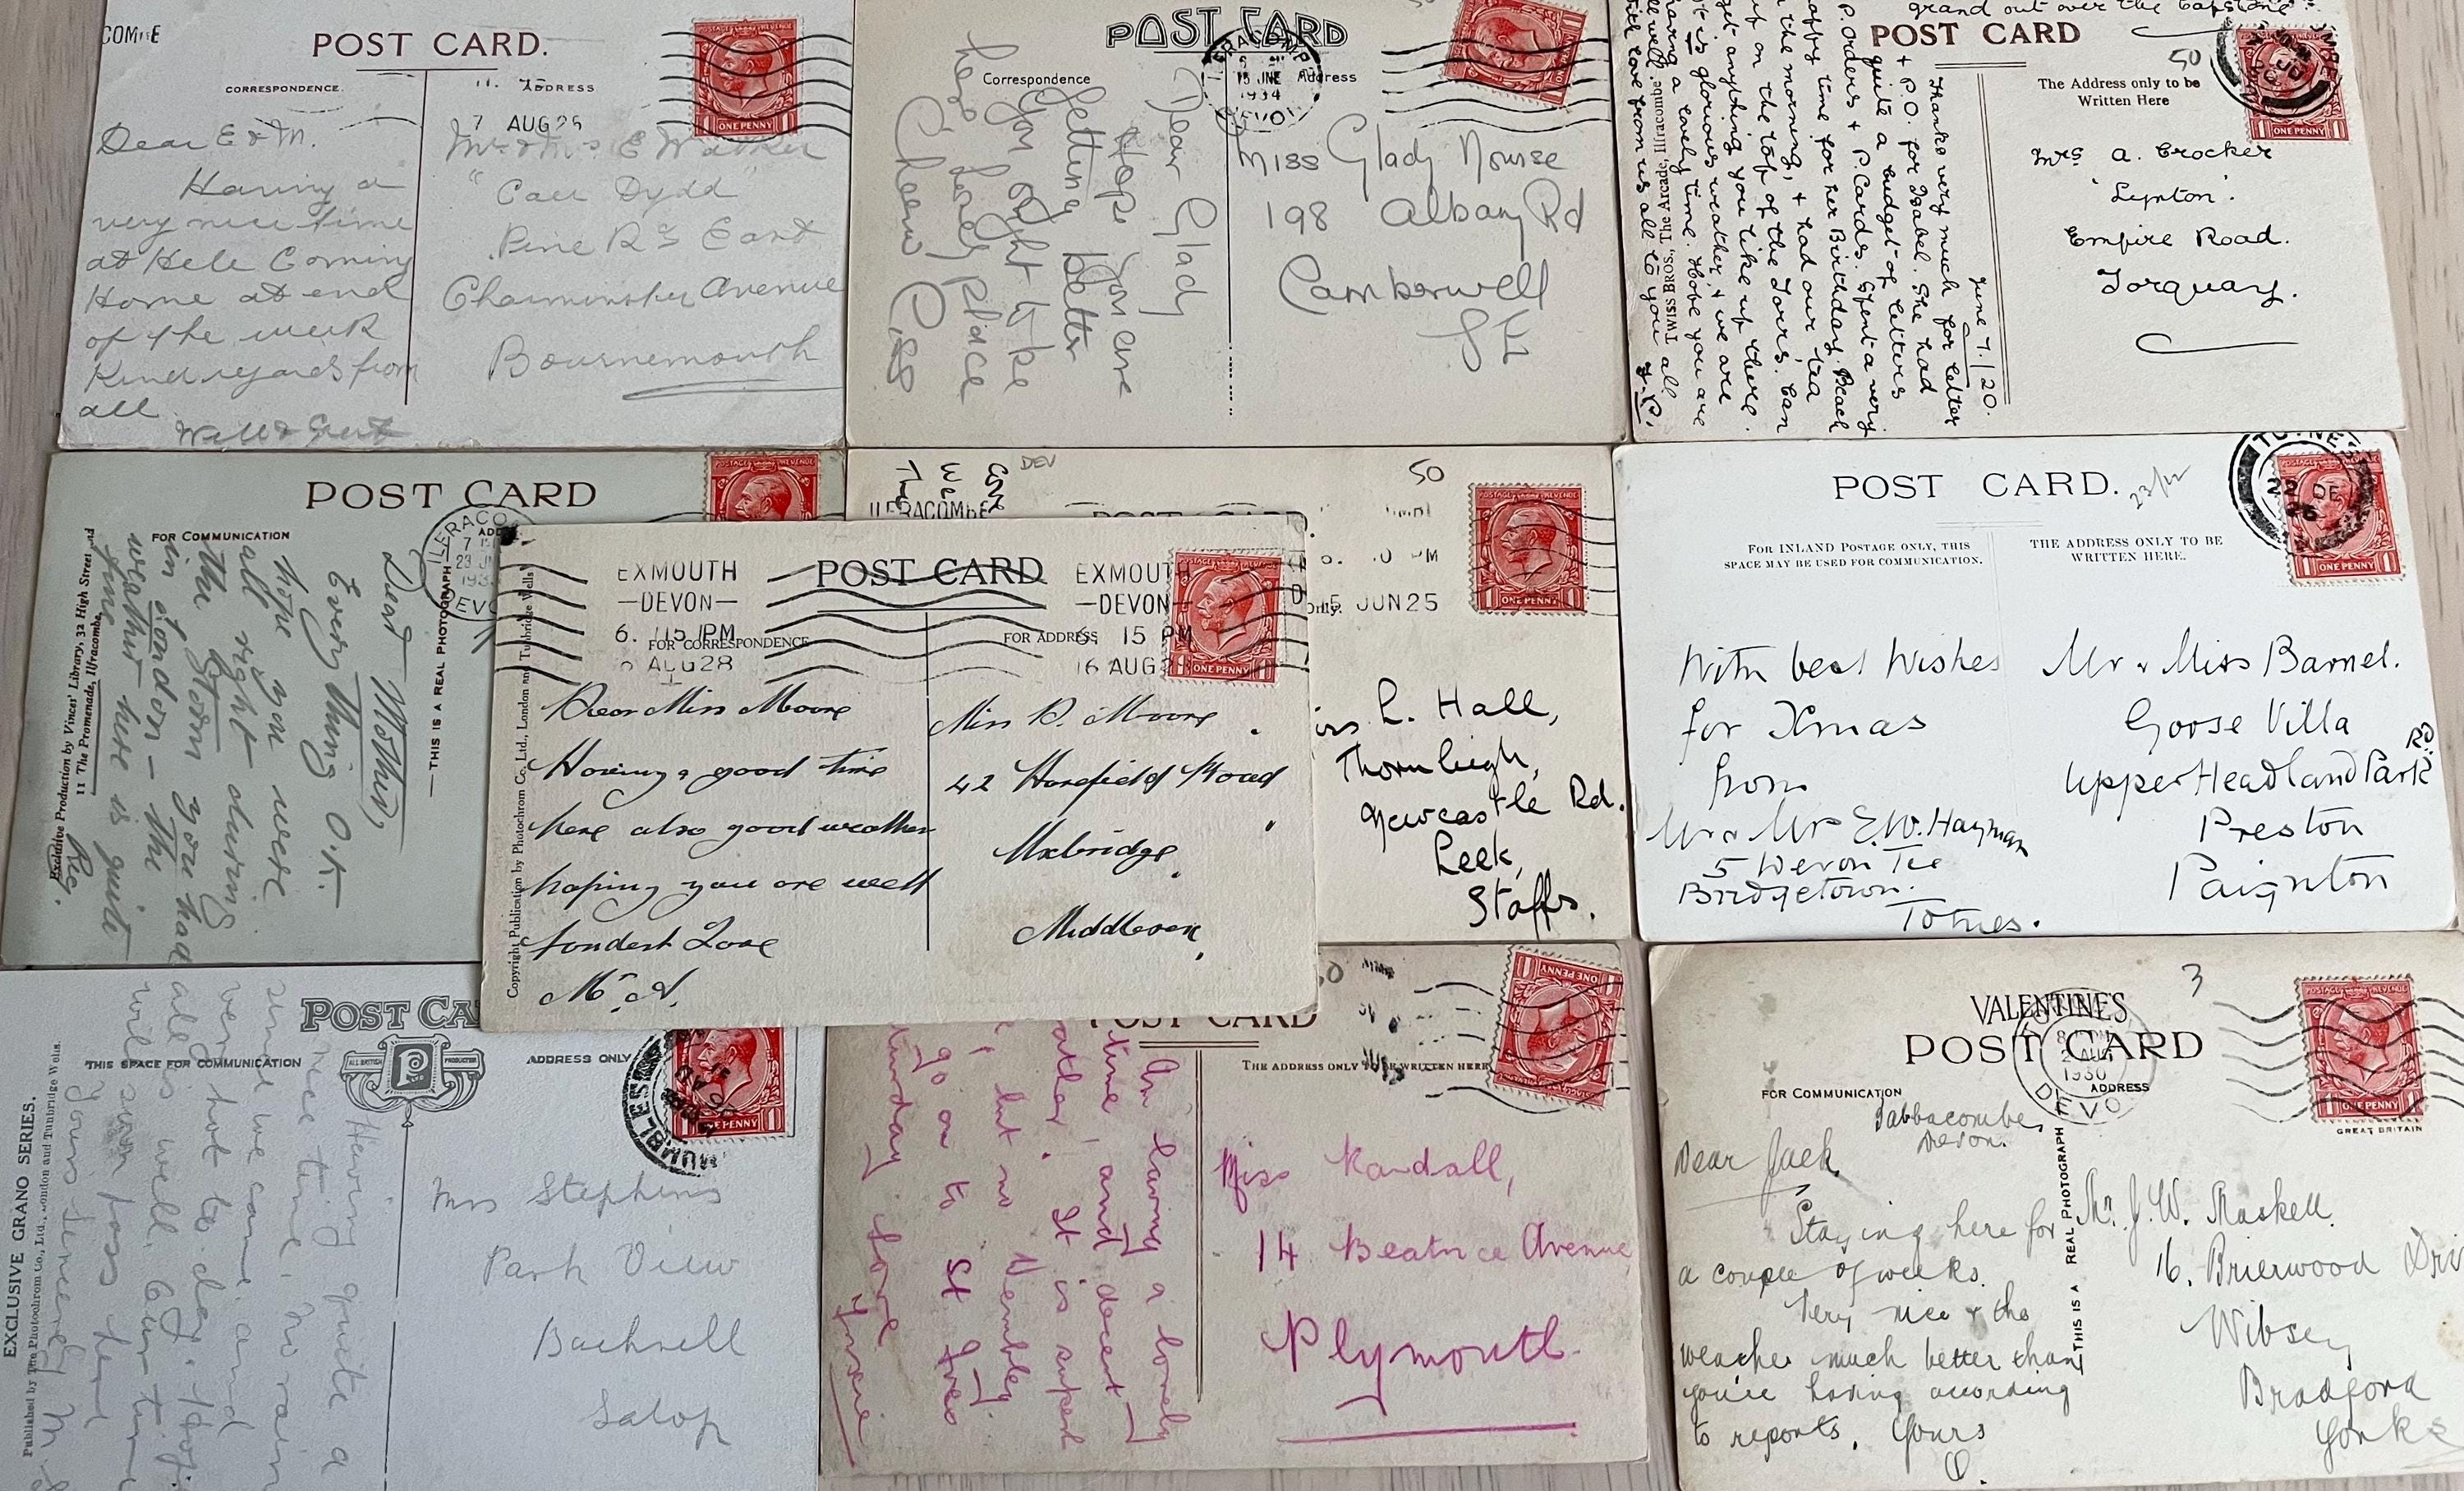 COMBE
POST CARD.
CORRESPONDENCE.
ADDRESS
7 AUG 25
ONE PENNY
Dear E & M.
Having a
very nice time
at Hele Coming
Home at end
of the week
Kind regards from
all
Mr & Mrs E Walker
"Caer Dydd"
Pine Rd East
Charminster Avenue
Bournemouth
POST CARD
Correspondence
Address
1934
Dear Glady
Hope you are
getting better
you ought to be
here lovely place
Cheerio
Miss Glady Nourse
198 Albany Rd
Camberwell
SE
grand out over the Capstone
POST CARD
50
The Address only to be
Written Here
ONE PENNY
June 7. / 20.
Thanks very much for letter
+ P.O. for Isabel. She had
quite a budget of letters
P. orders + P. Cards. Spent a very
happy time for her Birthday. Beach
in the morning, + had our tea
up on the top of the Torrs. Can
get anything you like up there.
It is glorious weather, + we are
having a lovely time. Hope you are
all well.
with love from us all to you all
TWISS BROS., The Arcade, Ilfracombe.
Mrs A. Crocker
'Lynton'.
Empire Road.
Torquay.
POST CARD
FOR COMMUNICATION
POSTAGE REVENUE
Exclusive Production by Vinces' Library, 32 High Street and
11 The Promenade, Ilfracombe.
— THIS IS A REAL PHOTOGRAPH —
Dear Mother,
Every thing O.K.
hope you were
all right during
the storm you had
in London – the
weather here is quite
fine
Reg.
DEV
ILFRACOMBE
50
5 JUN 25
ONE PENNY
L. Hall,
Thornleigh,
Newcastle Rd.
Leek,
Staffs.
POST CARD.
23/12
22 DE
26
FOR INLAND POSTAGE ONLY, THIS
SPACE MAY BE USED FOR COMMUNICATION.
THE ADDRESS ONLY TO BE
WRITTEN HERE.
ONE PENNY
With best Wishes
for Xmas
from
Mr & Mrs E.W. Hayman
5 Devon Tce
Bridgetown.
Totnes.
Mr & Miss Barnel.
Goose Villa
Upper Headland Park
RD.
Preston
Paignton
EXMOUTH
—DEVON—
6. 15 PM
AUG 28
POST CARD
EXMOUTH
—DEVON—
6. 15 PM
16 AUG
FOR CORRESPONDENCE
FOR ADDRESS
ONE PENNY
Copyright Publication by Photochrom Co. Ltd., London and Tunbridge Wells
Dear Miss Moore
Having a good time
here also good weather
hoping you are well
fondest Love
Miss D. Moore
42 Harefield Road
Uxbridge
Middlesex
POST CA
THIS SPACE FOR COMMUNICATION
ALL BRITISH
PRODUCTION
ADDRESS ONLY
MUMBLES
EXCLUSIVE GRANO SERIES.
Published by The Photochrom Co., Ltd., London and Tunbridge Wells.
Having quite a
nice time, no rain
since we came and
very hot to-day. Hope
all is well. Our time
will soon pass
Yours Sincerely
Mrs Stephens
Park View
Bucknell
Salop
POST CARD
THE ADDRESS ONLY TO BE WRITTEN HERE
ONE PENNY
Am having a lovely
time, and decent
weather. It is super
but no Wembley.
go on to St Ives
love
Miss Randall,
14 Beatrice Avenue
Plymouth.
3
VALENTINE'S
POST CARD
1930
FOR COMMUNICATION
ADDRESS
ONE PENNY
GREAT BRITAIN
THIS IS A REAL PHOTOGRAPH
Babbacombe,
Devon.
Dear Jack,
Staying here for
a couple of weeks.
Very nice & the
weather much better than
you're having according
to reports. Yours
Mr. J. W. Maskell.
16, Brierwood Driv
Wibsey
Bradford
Yorks